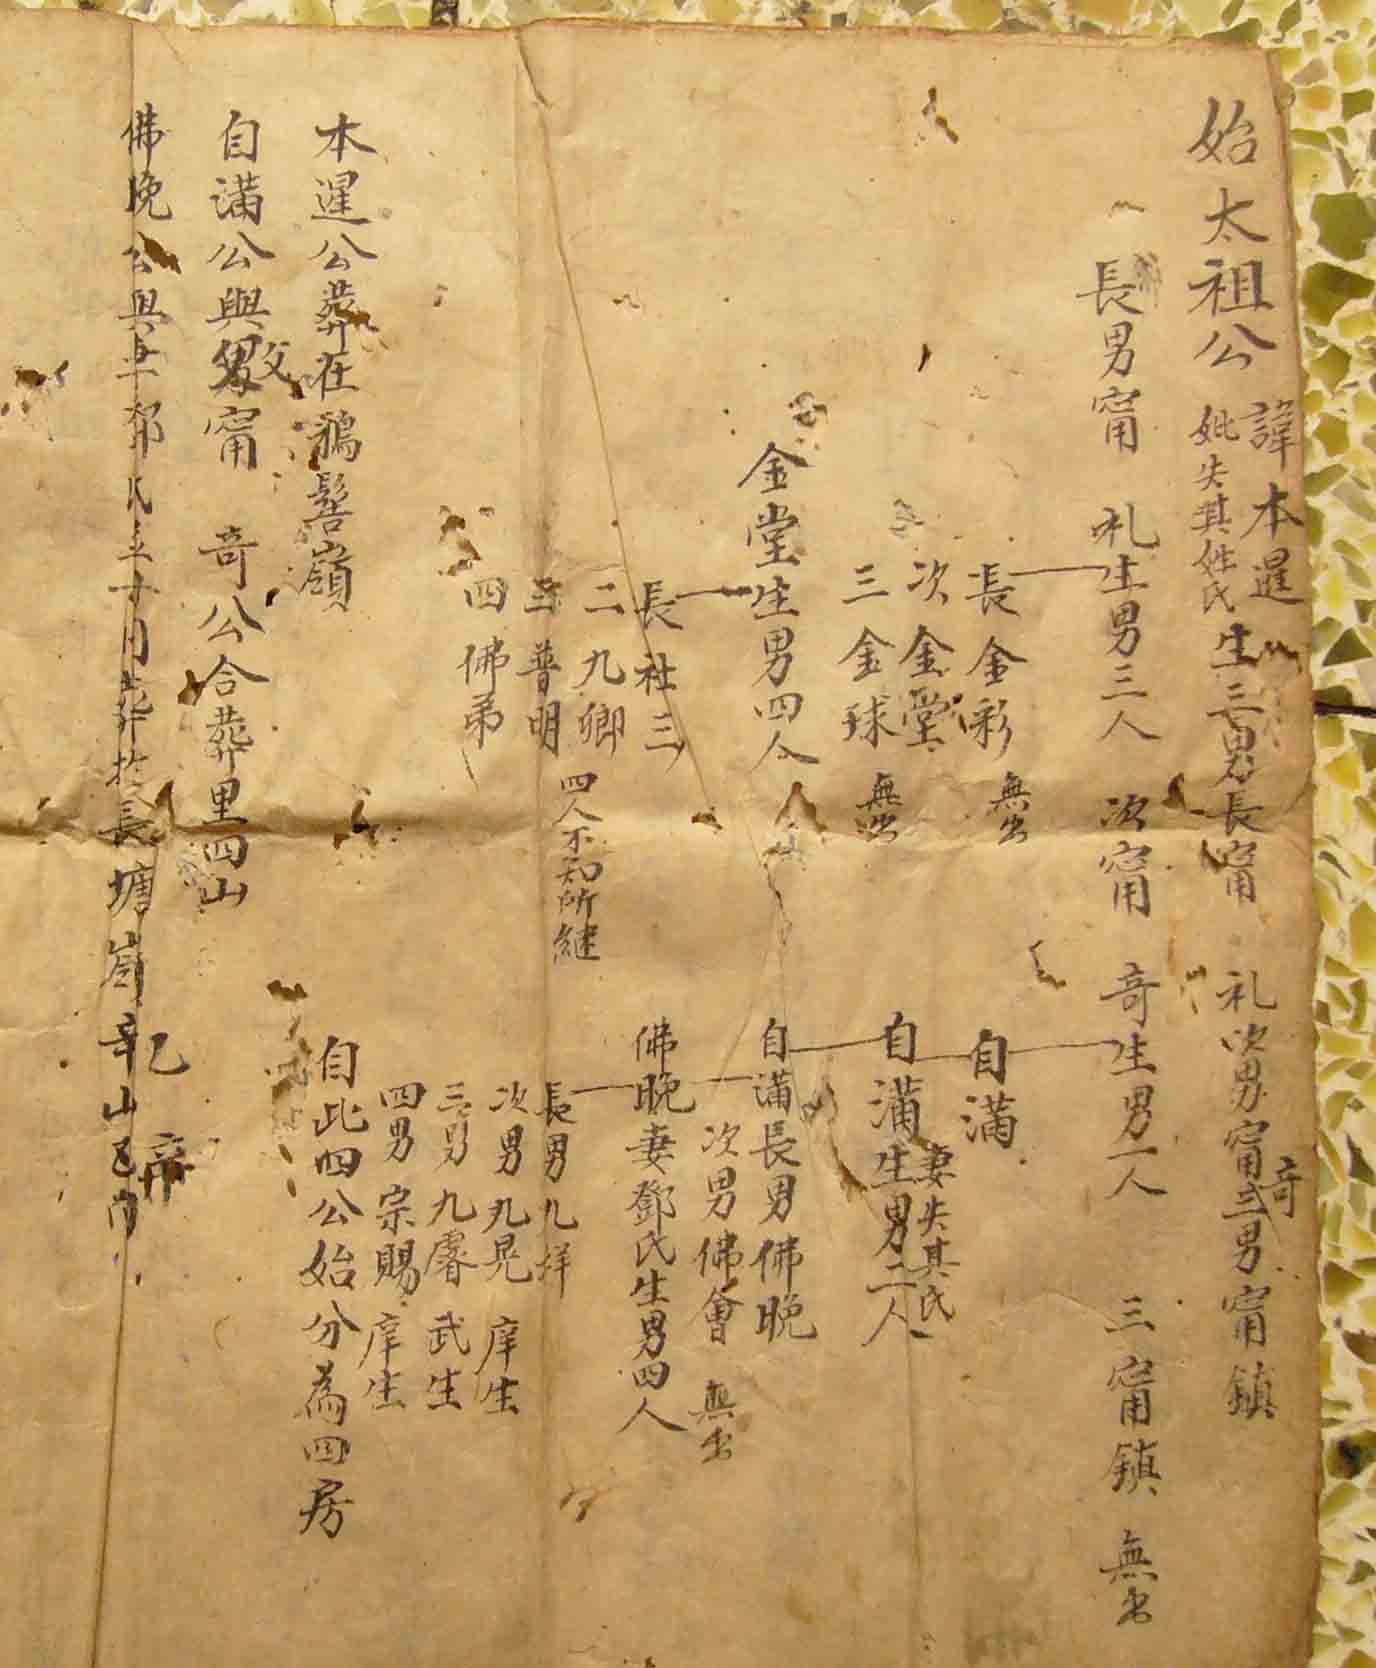 始太祖公 諱本暹 妣失其姓氏 生三男長甯 礼次男甯竒三男甯鎮
長男甯 礼生男三人 次甯 竒生男一人 三甯鎮 無出
長金彩 無出
次金堂
三金球 無出
金堂生男四人
長社三
二九卿
三普明
四佛弟
四人不知所継
自滿
自滿生男二人 妻失其氏
自滿長男佛晚
次男佛會 無出
佛晚妻鄧氏生男四人
長男九祥
次男九晃 庠生
三男九睿 武生
四男宗賜 庠生
自此四公始分為四房
本暹公葬在鵝髻嶺
自滿公與父甯 竒公合葬里四山
佛晚公與妻鄧氏 葬於長塘嶺 辛山乙向